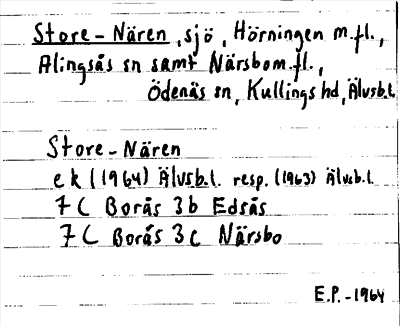 Store-Nären, sjö, Hörningen m.fl.,
Alingsås sn samt Närsbo m.fl.,
Ödenäs sn, Kullings hd, Älvsb.l.
Store-Nären
ek (1964) Älvsb.l. resp. (1963) Älvsb.l.
7 C Borås 3b Edsås
7 C Borås 3c Närsbo
E.P.-1964